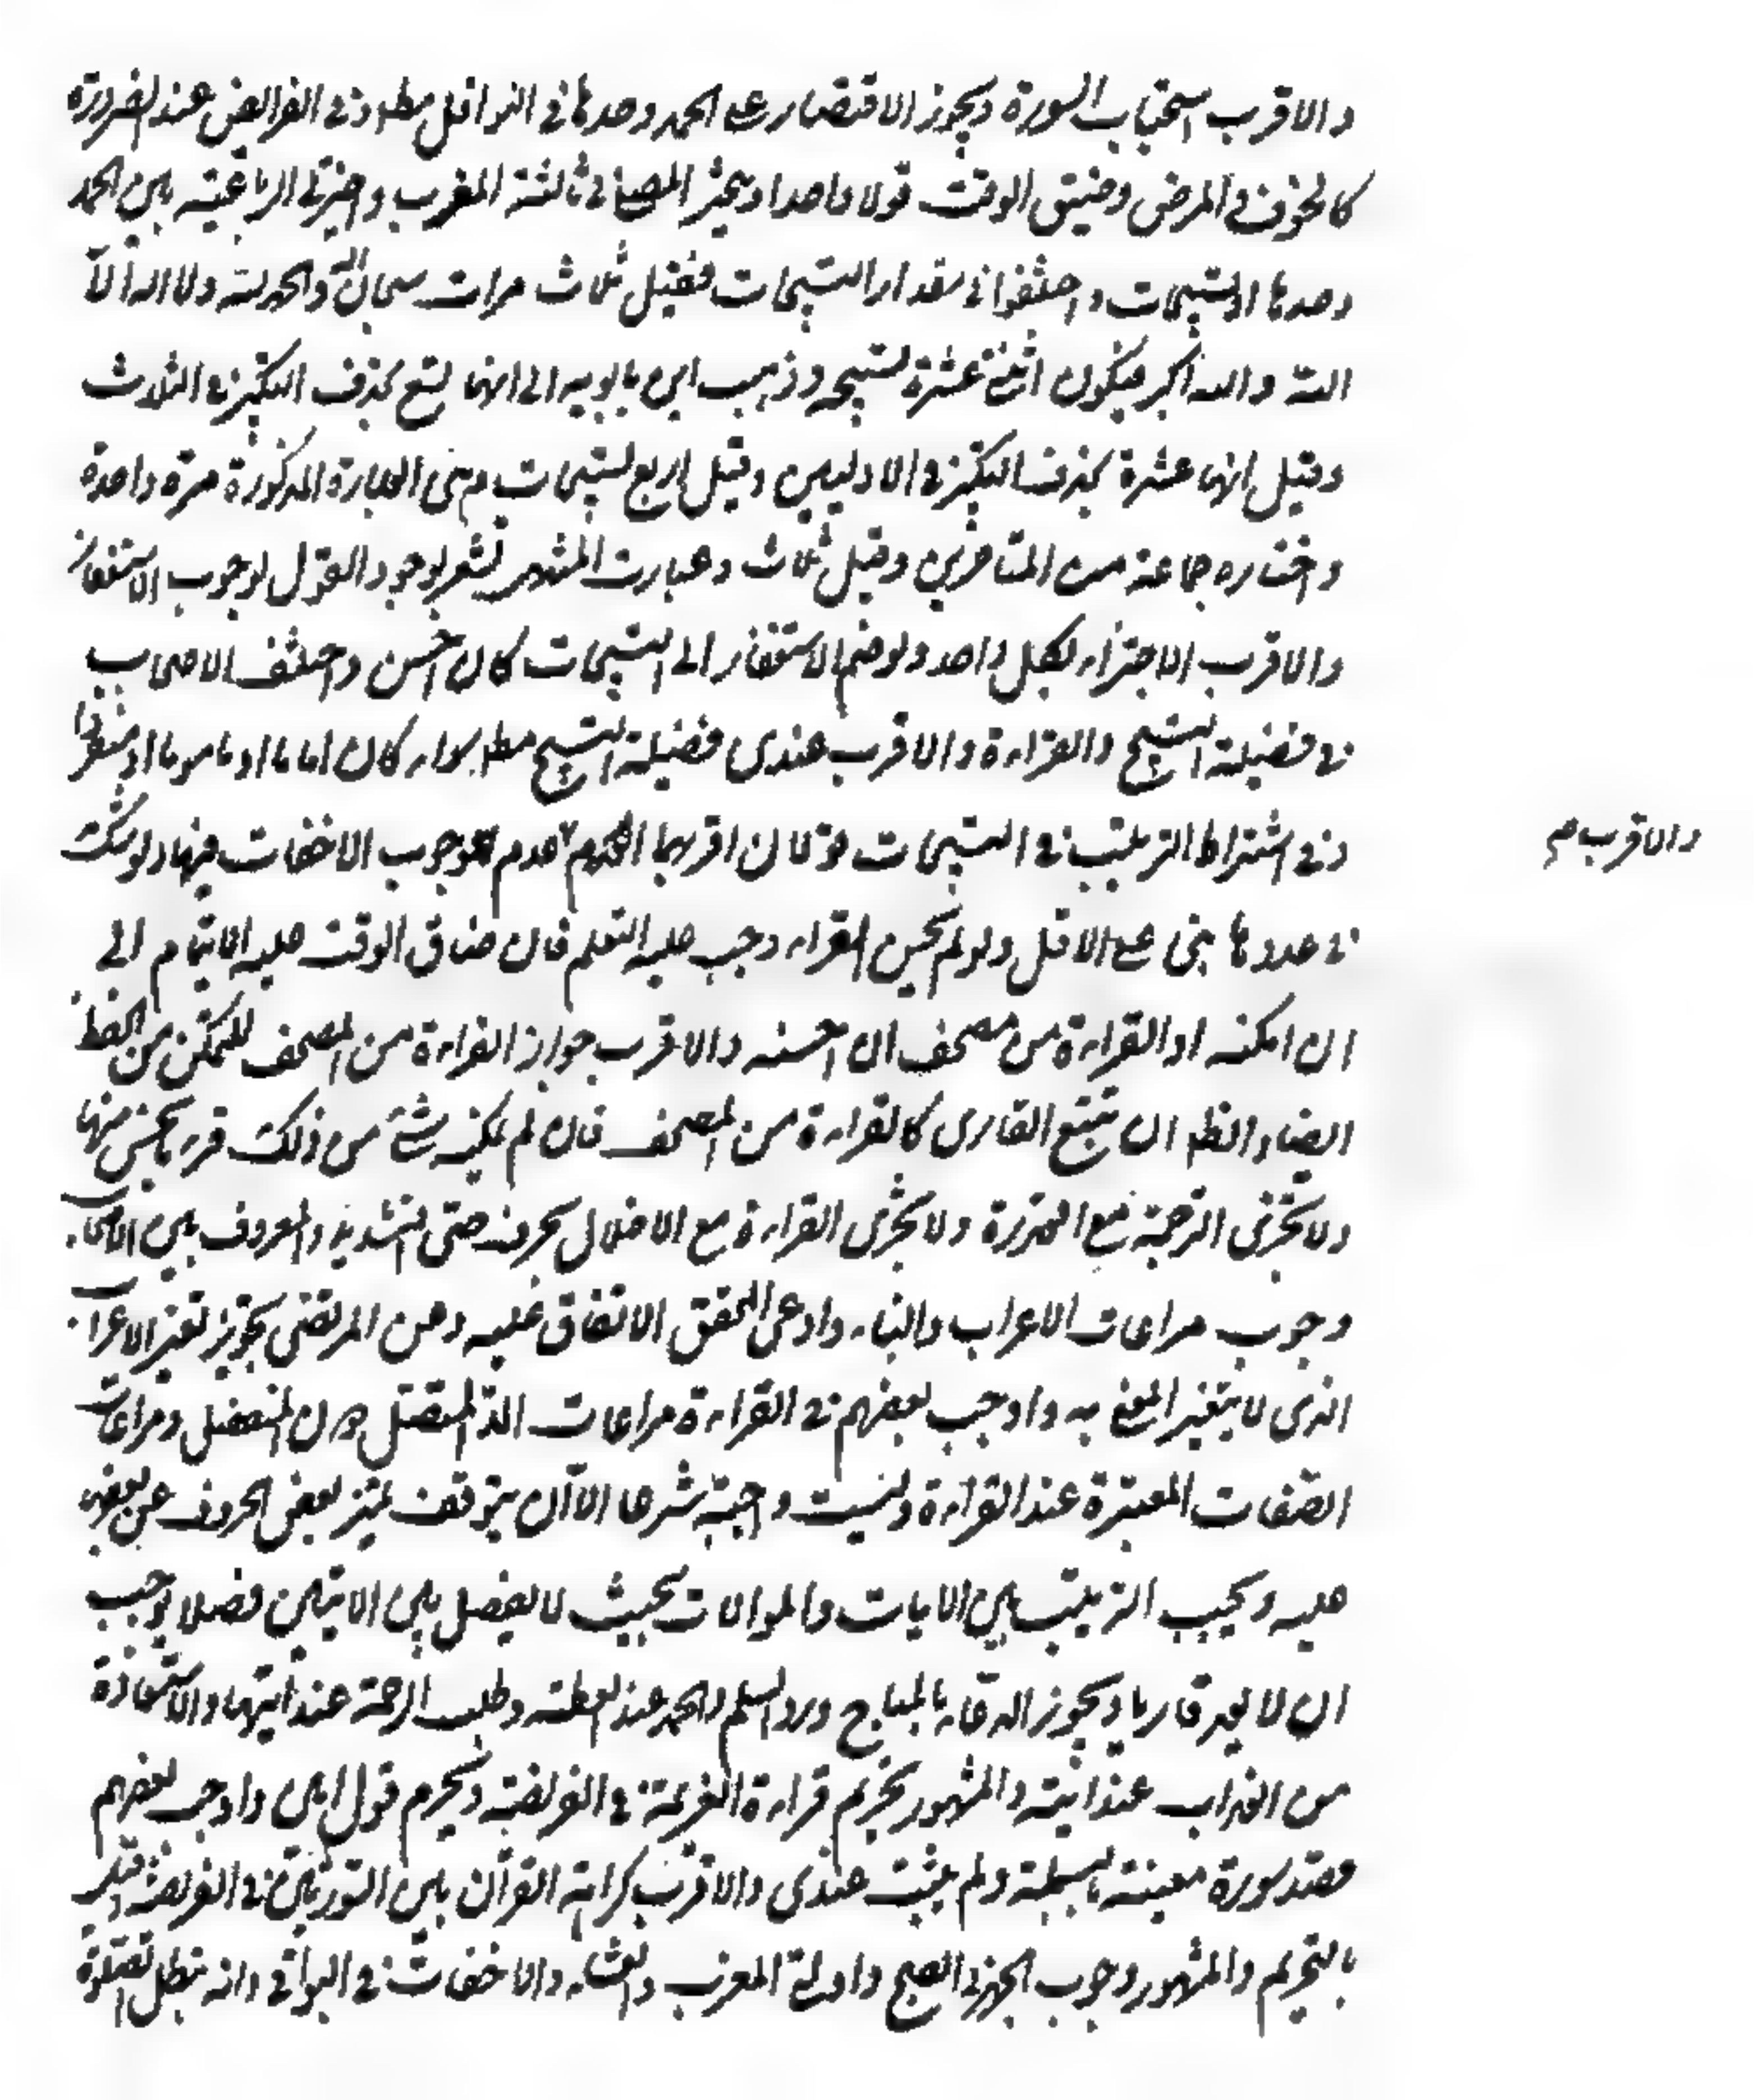 والاقرب استحباب السورة ويجوز الاقتصار على الحمد وحدها في النوافل مطلقا وفي الفرائض عند الضرورة
كالخوف والمرض وضيق الوقت قولا واحدا ويخير المصلي في ثالثة المغرب واخيرتي الرباعية بين الحمد
وحدها او التسبيحات واختلفوا في مقدار التسبيحات فقيل ثلاث مرات سبحان الله والحمد لله ولا اله الا
الله والله اكبر فيكون اثنتي عشرة تسبيحة وذهب ابن بابويه الى انها تسع بحذف التكبير في الثلاث
وقيل انها عشرة بحذف التكبير في الاوليين وقيل اربع تسبيحات وهي العبارة المذكورة مرة واحدة
واختاره جماعة من المتاخرين وقيل ثلاث وعبارت المشهور تشعر بوجود القول بوجوب الاستغفار
والاقرب الاجتزاء بكل واحد ولو ضم الاستغفار الى التسبيحات كان احسن واختلف الاصحاب
في فضيلة التسبيح والقراءة والاقرب عندى فضيلة التسبيح مطلقا سواء كان اماما او ماموما او منفردا
وفي اشتراط الترتيب في التسبيحات قولان اقربهما العدم وجوب الاخفات فيها ولو شك
والاقرب عدم
في عددها بنى على الاقل ولو لم يحسن القراءة وجب عليه التعلم فان ضاق الوقت عليه الايتمام الى
ان امكنه او القراءة من مصحف ان احسنه والاقرب جواز القراءة من المصحف للمتمكن من الحفظ
ايضا والظ ان تتبع القارى كالقراءة من المصحف فان لم يمكنه شئ من ذلك قرء بما يحسن منها
ولا تجزى الترجمة مع القدرة ولا تجزى القراءة مع الاخلال بحرف حتى التشديد والمعروف بين الاصحاب
وجوب مراعات الاعراب والبناء وادعى المحقق الاتفاق عليه وعن المرتضى تجويز تغيير الاعراب
الذى لا يتغير المعنى به واوجب بعضهم في القراءة مراعات المد المتصل دون المنفصل ومراعات
الصفات المعتبرة عند القراءة وليست واجبة شرعا الا ان يتوقف تميز بعض الحروف عن بعض
عليه ويجب الترتيب بين الايات والموالات بحيث لا يفصل بين الايتين فصلا يوجب
ان لا يعد قاريا ويجوز الدعاء بالمباح ورد السلم والحمد عند العطسة وطلب الرحمة عند ايتها والاستعاذة
من العذاب عند ايته والمشهور تحريم قراءة العزيمة في الفريضة ويحرم قول امين واوجب بعضهم
قصد سورة معينة بالبسملة ولم يثبت عندى والاقرب كراهة القران بين السورتين في الفريضة وقيل
بالتحريم والمشهور وجوب الجهر في الصبح واولتي المغرب والعشاء والاخفات في البواقي وانه تبطل الصلوة